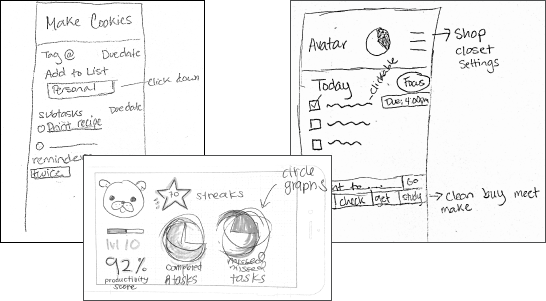 Make Cookies
Tag @ Duedate
Add to List
Personal
click down
subtasks Duedate
Print recipe
reminders
twice
Avatar
Shop
closet
settings
Today
clickable
Focus
Due: 4:00pm
to ... Go
check get study
clean buy meet
make
70 streaks
circle
graphs
lvl 10
92%
productivity
score
completed
tasks
missed
tasks